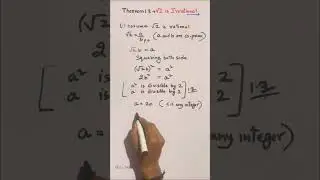 Theorem 1.3 √2 is Irrational
(i) assume √2 is rational
√2 = a/b (a and b are co-prime)
√2 b = a
Squaring both side
(√2 b)² = a²
2b² = a²
[ a² is divisible by 2
a is divisible by 2 ] 1.2
a = 2c (c is any integer)
any integer)